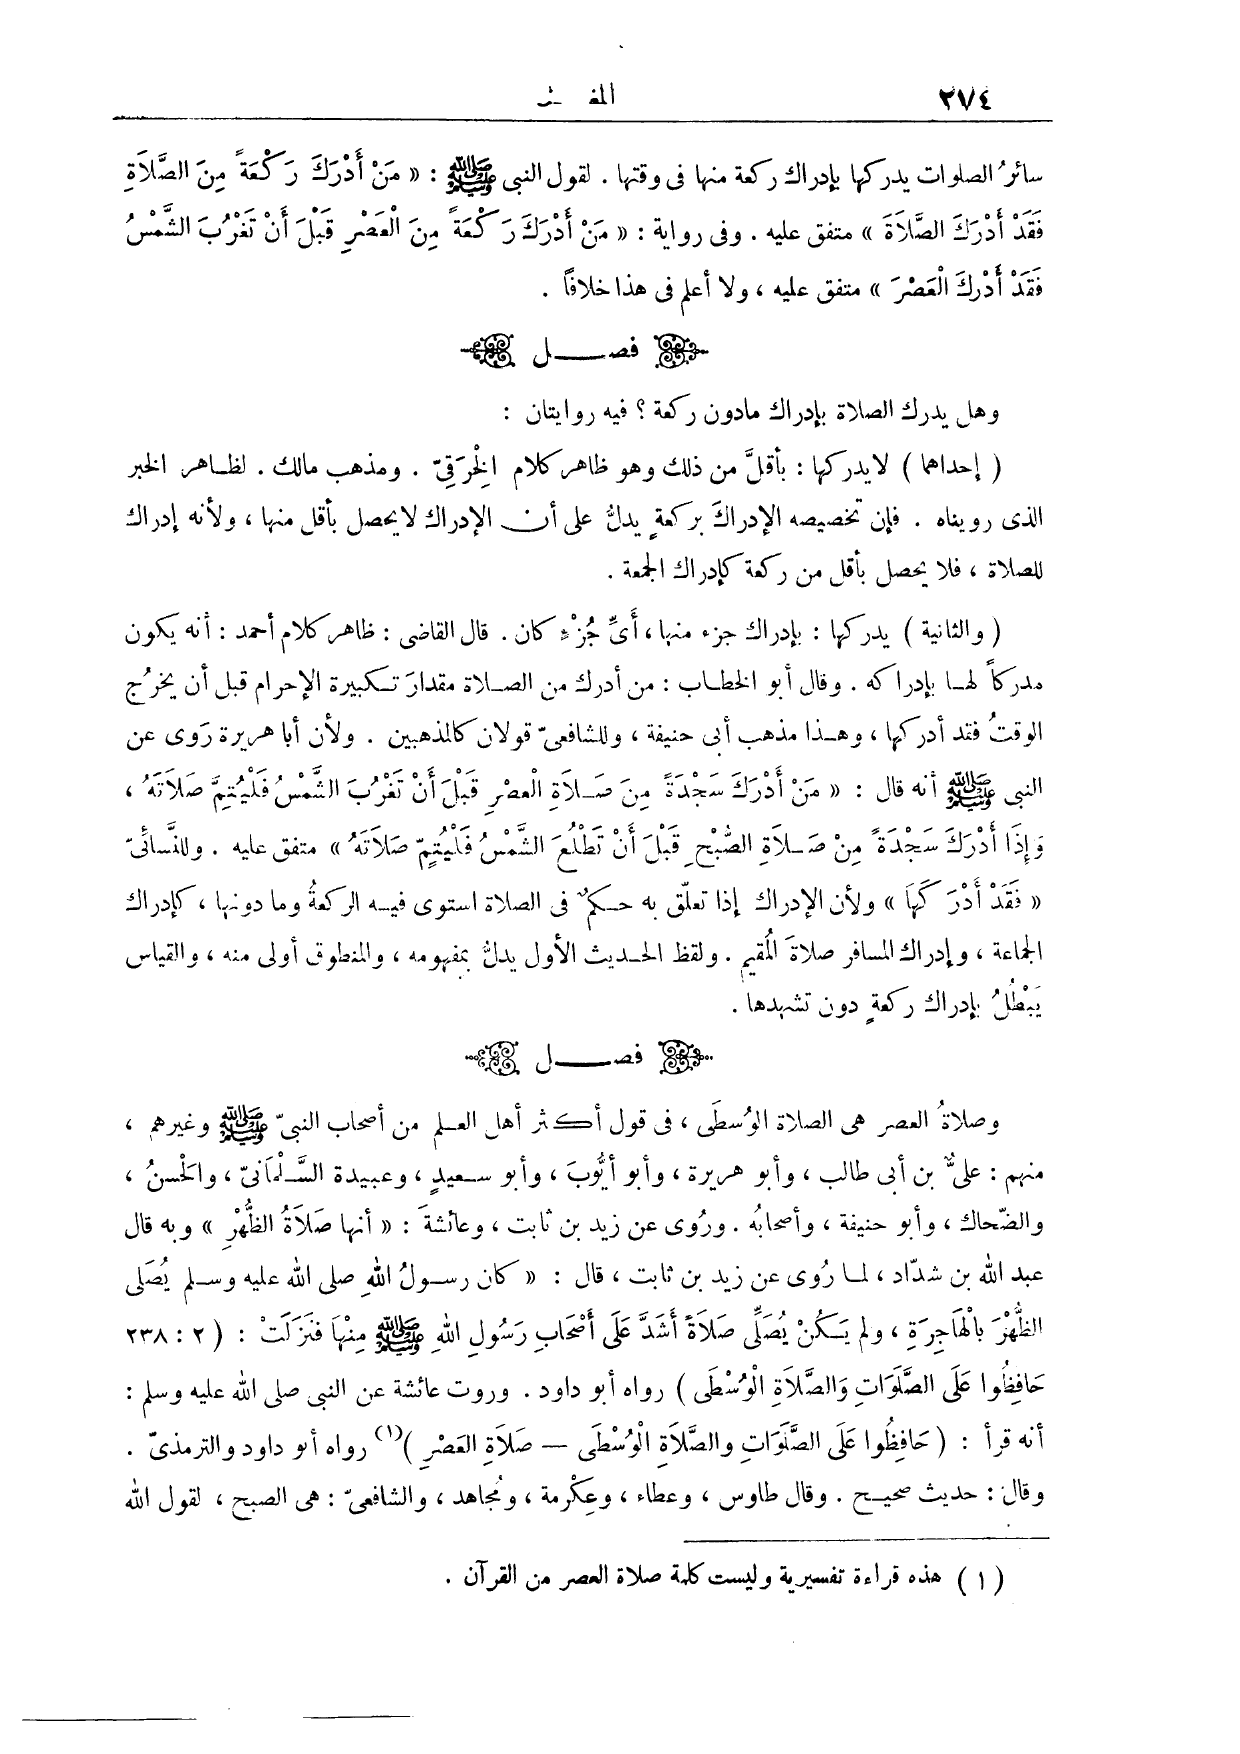 ٢٧٤
سائرُ الصلوات يدركها بإدراك ركعة منها فى وقتها . لقول النبى ﷺ : « مَنْ أَدْرَكَ رَكْعَةً مِنَ الصَّلَاةِ
فَقَدْ أَدْرَكَ الصَّلَاةَ » متفق عليه . وفى رواية : « مَنْ أَدْرَكَ رَكْعَةً مِنَ الْعَصْرِ قَبْلَ أَنْ تَغْرُبَ الشَّمْسُ
فَقَدْ أَدْرَكَ الْعَصْرَ » متفق عليه ، ولا أعلم فى هذا خلافاً .
فصـــل
وهل يدرك الصلاة بإدراك مادون ركعة ؟ فيه روايتان :
( إحداها ) لايدركها : بأقلَّ من ذلك وهو ظاهر كلام الخِرَقِىّ . ومذهب مالك . لظاهر الخبر
الذى رويناه . فإن تخصيصه الإدراكَ بركعةٍ يدلُّ على أن الإدراك لايحصل بأقل منها ، ولأنه إدراك
للصلاة ، فلا يحصل بأقل من ركعة كإدراك الجمعة .
( والثانية ) يدركها : بإدراك جزء منها ، أَىِّ جُزْءٍ كان . قال القاضى : ظاهر كلام أحمد : أنه يكون
مدركاً لها بإدراكه . وقال أبو الخطاب : من أدرك من الصلاة مقدارَ تكبيرة الإحرام قبل أن يخرُج
الوقتُ فقد أدركها ، وهذا مذهب أبى حنيفة ، وللشافعىّ قولان كالمذهبين . ولأن أبا هريرة رَوى عن
النبى ﷺ أنه قال : « مَنْ أَدْرَكَ سَجْدَةً مِنَ صَلَاةِ الْعصْرِ قَبْلَ أَنْ تَغْرُبَ الشَّمْسُ فَلْيُتِمَّ صَلَاتَهُ ،
وَإِذَا أَدْرَكَ سَجْدَةً مِنْ صَلَاةِ الصُّبْحِ قَبْلَ أَنْ تَطْلُعَ الشَّمْسُ فَلْيُتِمّ صَلَاتَهُ » متفق عليه . وللنَّسائَىّ
« فَقَدْ أَدْرَكَهَا » ولأن الإدراك إذا تعلّق به حكمٌ فى الصلاة استوى فيه الركعةُ وما دونها ، كإدراك
الجماعة ، وإدراك المسافر صلاةَ المُقيمِ . ولفظ الحديث الأول يدلُّ بمفهومه ، والمنطوق أولى منه ، والقياس
يَبْطُلُ بإدراك ركعةٍ دون تشهدها .
فصـــل
وصلاةُ العصر هى الصلاة الوُسطَى ، فى قول أكثر أهل العلم من أصحاب النبىّ ﷺ وغيرهم ،
منهم : علىٌّ بن أبى طالب ، وأبو هريرة ، وأبو أيُّوبَ ، وأبو سعيدٍ ، وعبيدة السَّلْمانىّ ، والحْسنُ ،
والضّحاك ، وأبو حنيفة ، وأصحابُه . ورُوى عن زيد بن ثابت ، وعائشةَ : « أنها صَلَاةُ الظُّهْرِ » وبه قال
عبد الله بن شدّاد ، لما رُوى عن زيد بن ثابت ، قال : « كان رسولُ اللهِ صلى الله عليه وسلم يُصَلى
الظُّهْرَ بالْهَاجِرَةِ ، ولم يَكُنْ يُصَلِّى صَلَاةً أَشَدَّ عَلَى أَصْحَابِ رَسُولِ اللهِ ﷺ مِنْهَا فَنَزَلَتْ : ( ٢ : ٢٣٨
حَافِظُوا عَلَى الصَّلَوَاتِ وَالصَّلَاةِ الْوُسْطَى ) رواه أبو داود . وروت عائشة عن النبى صلى الله عليه وسلم :
أنه قرأ : ( حَافِظُوا عَلَى الصَّلَوَاتِ والصَّلَاةِ الْوُسْطَى — صَلَاةِ العَصْرِ )(١) رواه أبو داود والترمذىّ .
وقال : حديث صحيح . وقال طاوس ، وعطاء ، وعِكْرمة ، ومُجاهد ، والشافعىّ : هى الصبح ، لقول الله
( ١ ) هذه قراءة تفسيرية وليست كلمة صلاة العصر من القرآن .